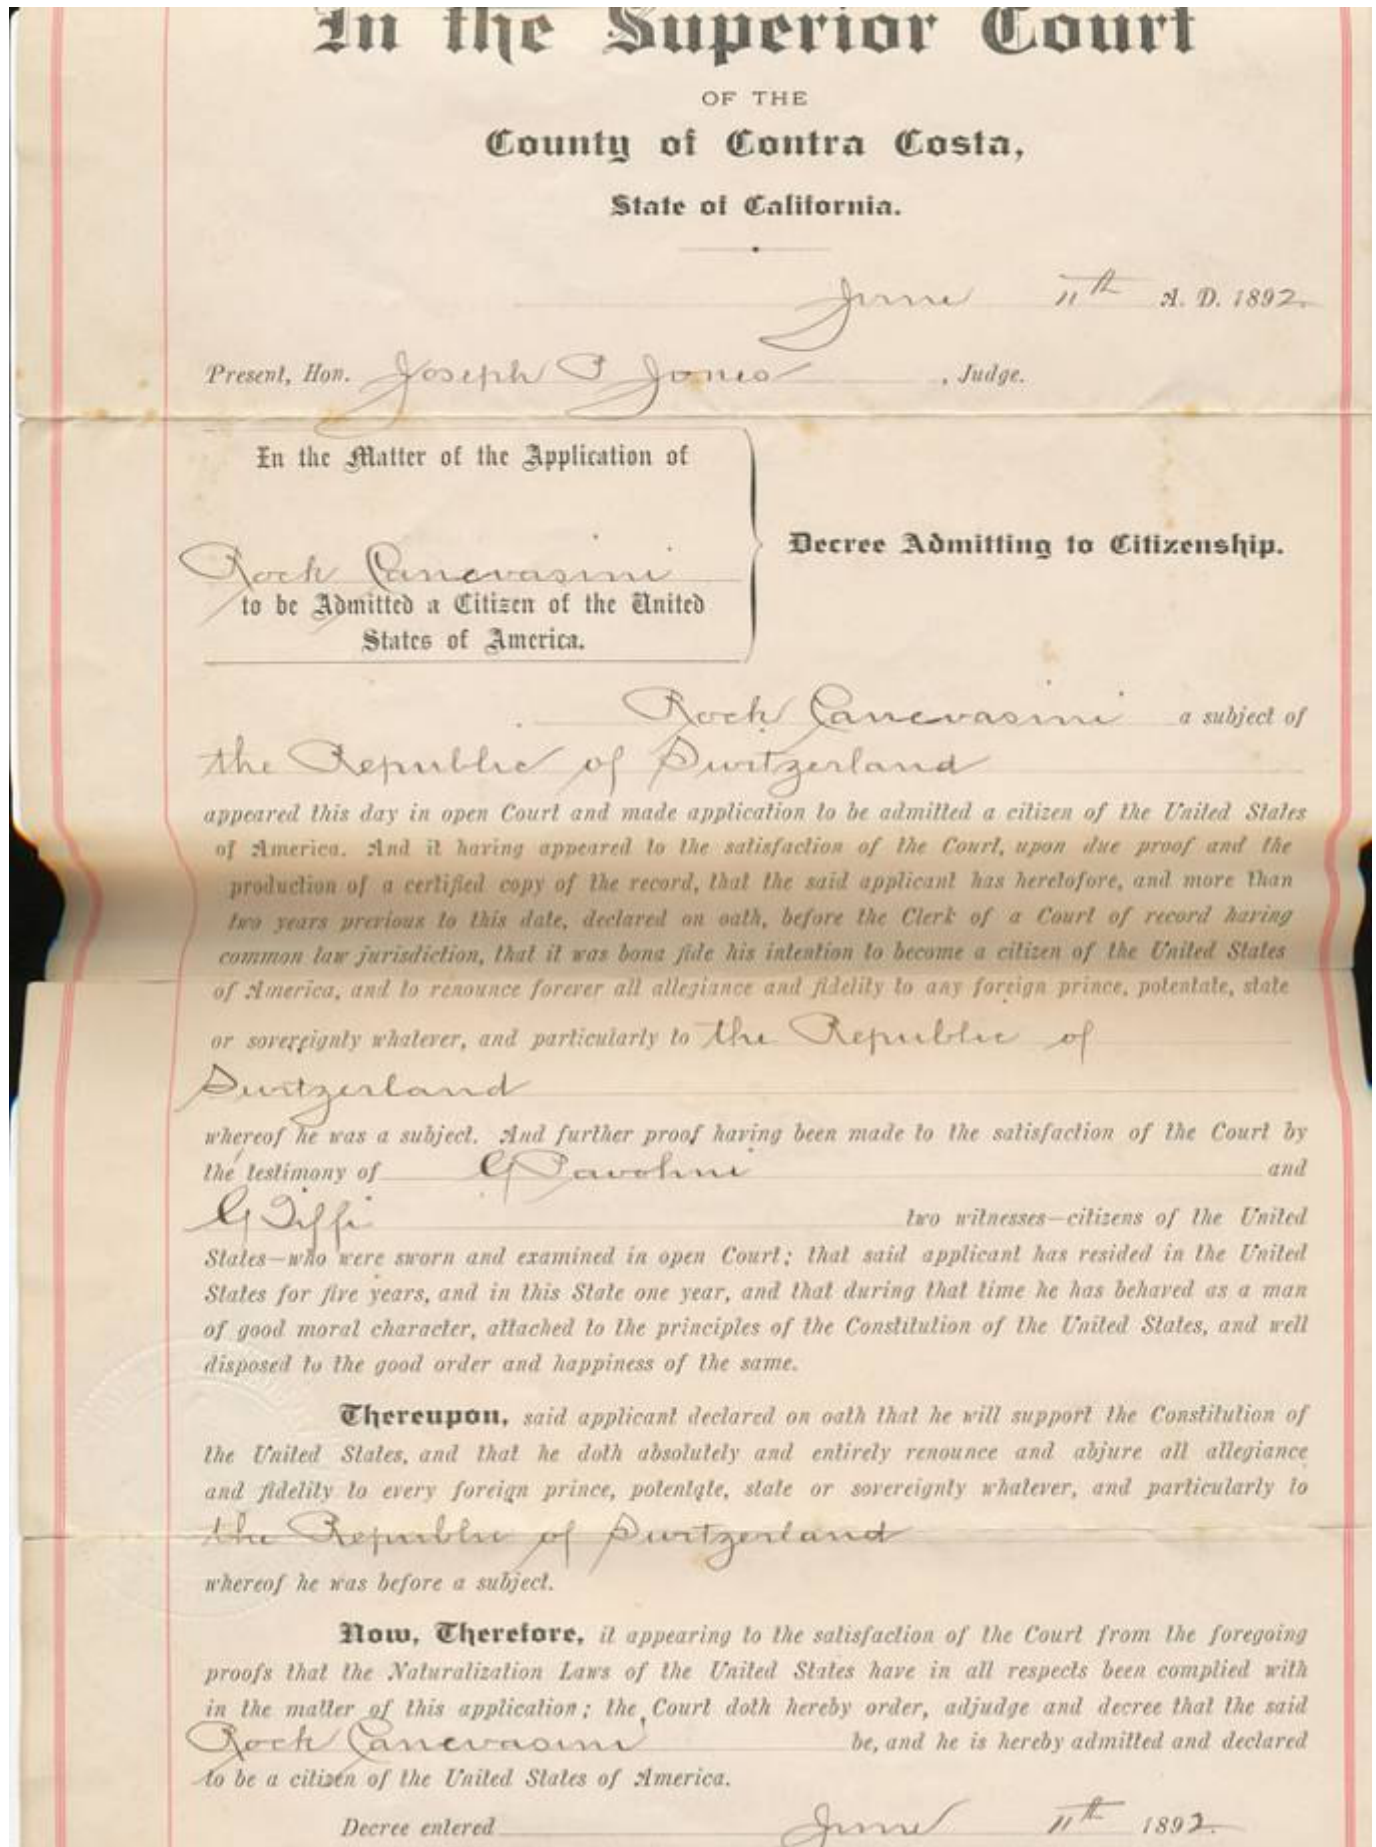 In the Superior Court
OF THE
County of Contra Costa,
State of California.
June 11th A. D. 1892.
Present, Hon. Joseph P Jones, Judge.
In the Matter of the Application of
Rock Canevasini
to be Admitted a Citizen of the United
States of America.
Decree Admitting to Citizenship.
Rock Canevasini a subject of
the Republic of Switzerland
appeared this day in open Court and made application to be admitted a citizen of the United States
of America. And it having appeared to the satisfaction of the Court, upon due proof and the
production of a certified copy of the record, that the said applicant has heretofore, and more than
two years previous to this date, declared on oath, before the Clerk of a Court of record having
common law jurisdiction, that it was bona fide his intention to become a citizen of the United States
of America, and to renounce forever all allegiance and fidelity to any foreign prince, potentate, state
or sovereignty whatever, and particularly to the Republic of
Switzerland
whereof he was a subject. And further proof having been made to the satisfaction of the Court by
the testimony of G Pavolini and
G two witnesses—citizens of the United
States—who were sworn and examined in open Court; that said applicant has resided in the United
States for five years, and in this State one year, and that during that time he has behaved as a man
of good moral character, attached to the principles of the Constitution of the United States, and well
disposed to the good order and happiness of the same.
Thereupon, said applicant declared on oath that he will support the Constitution of
the United States, and that he doth absolutely and entirely renounce and abjure all allegiance
and fidelity to every foreign prince, potentate, state or sovereignty whatever, and particularly to
the Republic of Switzerland
whereof he was before a subject.
Now, Therefore, it appearing to the satisfaction of the Court from the foregoing
proofs that the Naturalization Laws of the United States have in all respects been complied with
in the matter of this application; the Court doth hereby order, adjudge and decree that the said
Rock Canevasini be, and he is hereby admitted and declared
to be a citizen of the United States of America.
Decree entered June 11th 1892.